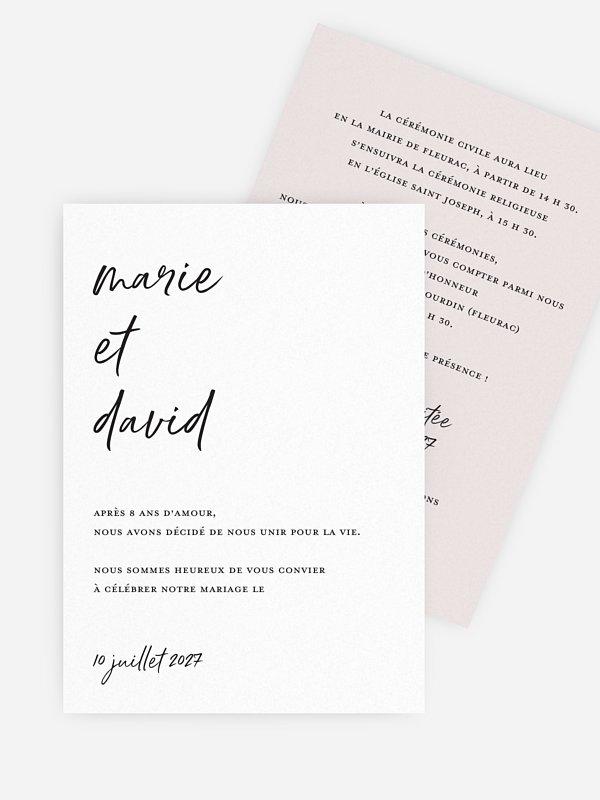 marie
et
david
APRÈS 8 ANS D'AMOUR,
NOUS AVONS DÉCIDÉ DE NOUS UNIR POUR LA VIE.
NOUS SOMMES HEUREUX DE VOUS CONVIER
À CÉLÉBRER NOTRE MARIAGE LE
10 juillet 2027
LA CÉRÉMONIE CIVILE AURA LIEU
EN LA MAIRIE DE FLEURAC, À PARTIR DE 14 H 30.
S'ENSUIVRA LA CÉRÉMONIE RELIGIEUSE
EN L'ÉGLISE SAINT JOSEPH, À 15 H 30.
CÉRÉMONIES,
VOUS COMPTER PARMI NOUS
D'HONNEUR
(FLEURAC)
H 30.
PRÉSENCE !